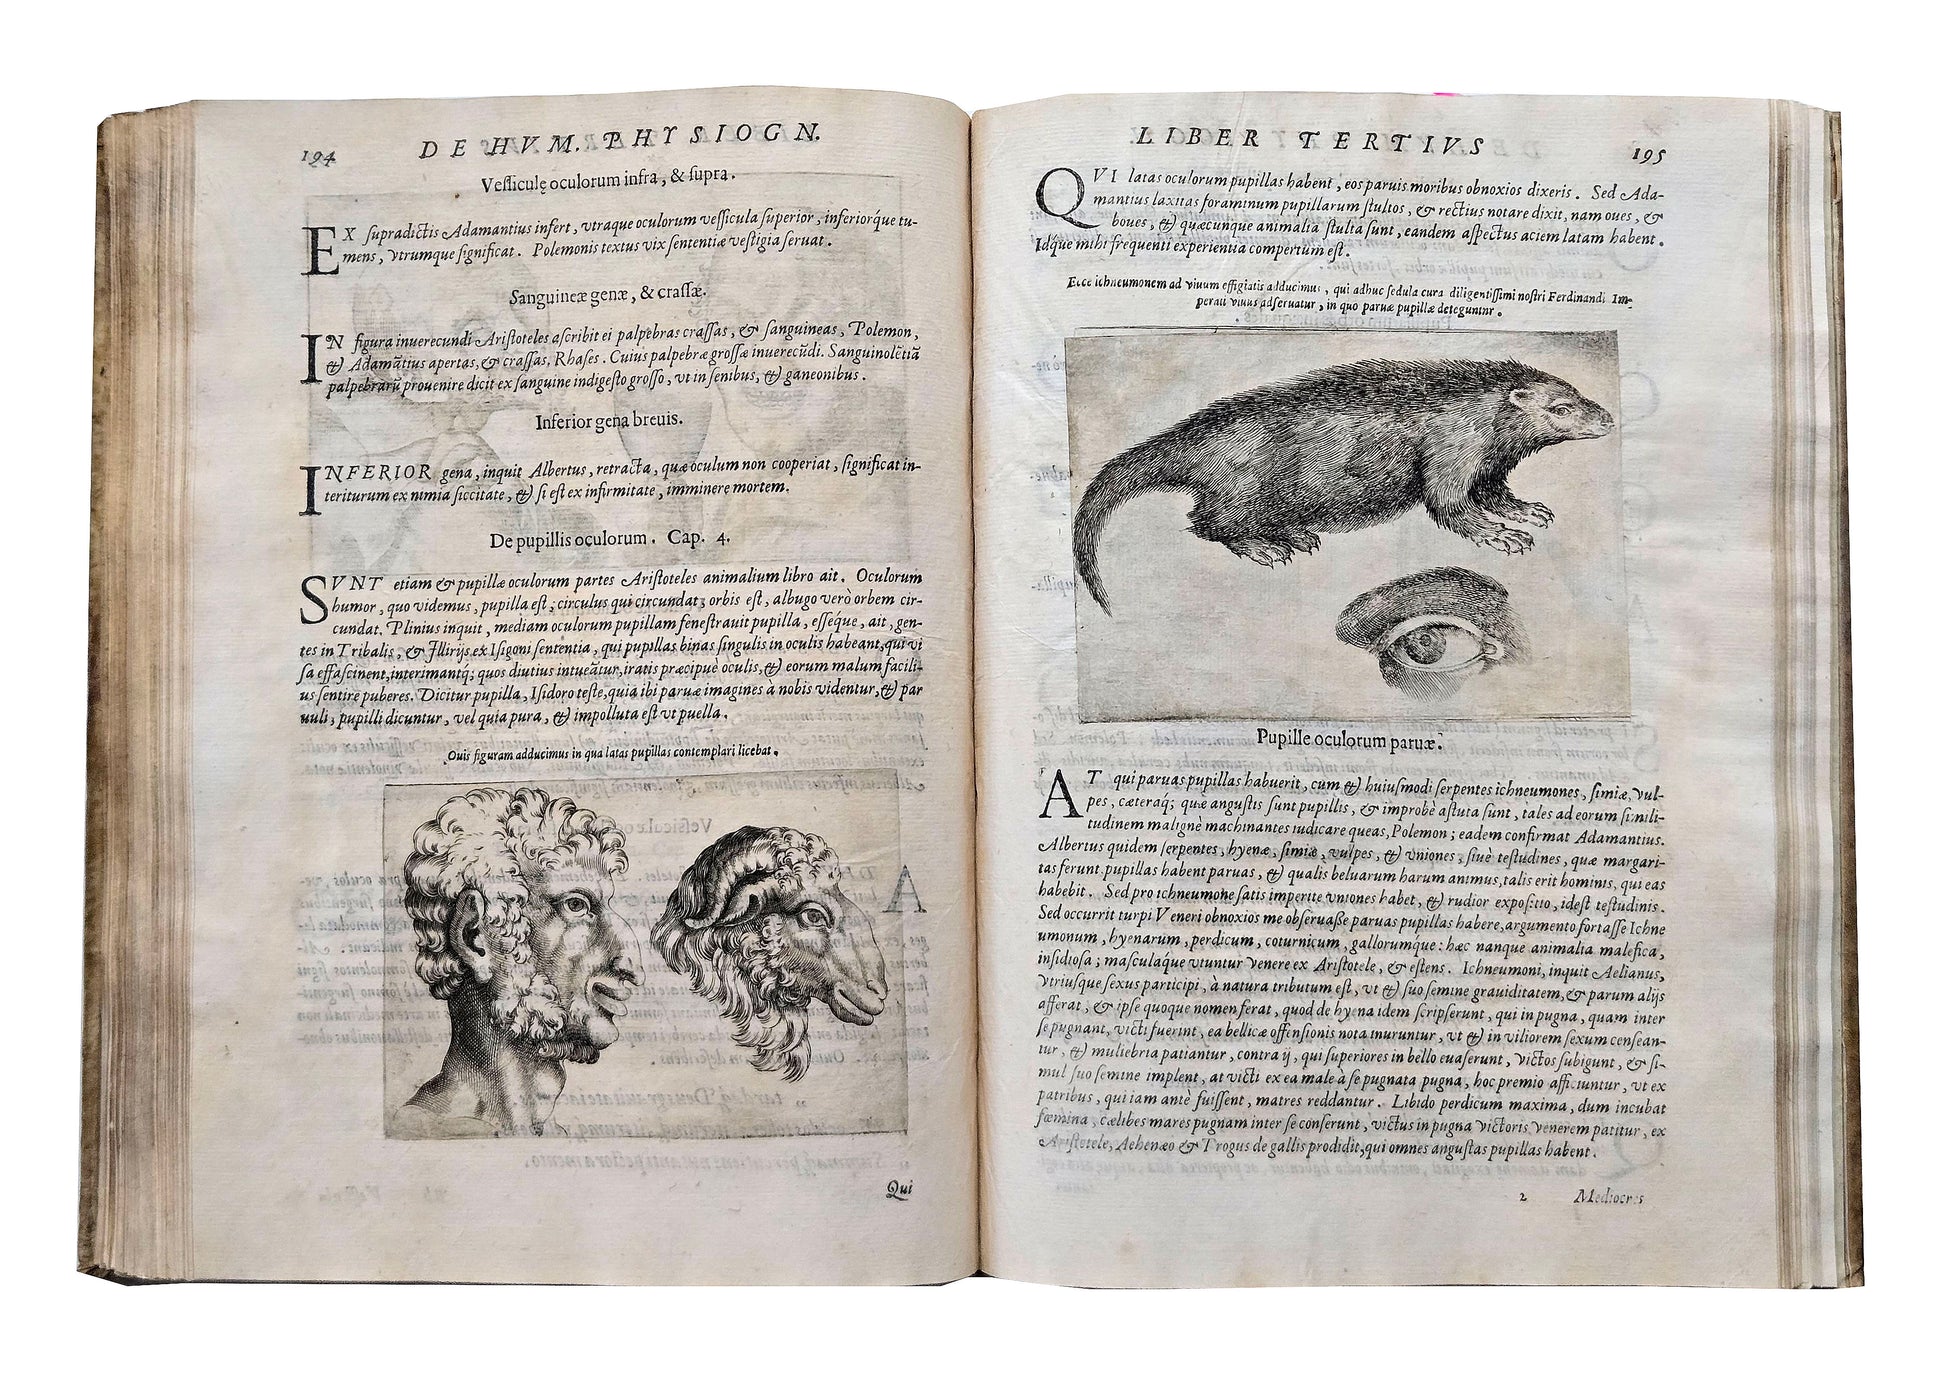 194
DE HVM. PHYSIOGN.
Vesiculę oculorum infra, & supra.
EX supradictis Adamantius infert, vtraque oculorum vessicula superior, inferiorq́ue tu-
mens, vtrumque significat. Polemonis textus vix sententiæ vestigia seruat.
Sanguineæ genæ, & crassæ.
IN figura inuerecundi Aristoteles ascribit ei palpebras crassas, & sanguineas, Polemon,
& Adamãtius apertas, & crassas, Rhases. Cuius palpebræ grossæ inuerecũdi. Sanguinolẽtiã
palpebrarũ prouenire dicit ex sanguine indigesto grosso, vt in senibus, & ganeonibus.
Inferior gena breuis.
INFERIOR gena, inquit Albertus, retracta, quæ oculum non cooperiat, significat in-
teriturum ex nimia siccitate, & si est ex infirmitate, imminere mortem.
De pupillis oculorum. Cap. 4.
SVNT etiam & pupillæ oculorum partes Aristoteles animalium libro ait. Oculorum
humor, quo videmus, pupilla est; circulus qui circundat; orbis est, albugo verò orbem cir-
cundat. Plinius inquit, mediam oculorum pupillam fenestrauit pupilla, esséque, ait, gen-
tes in Tribalis, & Illirijs, ex Isigoni sententia, qui pupillas binas singulis in oculis habeant, qui vi
sa effascinent, interimantq; quos diutius intueãtur, iratis præcipuè oculis, & eorum malum facili-
us sentire puberes. Dicitur pupilla, Isidoro teste, quia ibi paruæ imagines a nobis videntur, & par
uuli, pupilli dicuntur, vel quia pura, & impolluta est vt puella.
Ouis figuram adducimus in qua latas pupillas contemplari licebat.
Qui
LIBER TERTIVS
195
QVI latas oculorum pupillas habent, eos paruis moribus obnoxios dixeris. Sed Ada-
mantius laxitas foraminum pupillarum stultos, & rectius notare dixit, nam oues, &
boues, & quæcunque animalia stulta sunt, eandem aspectus aciem latam habent.
Idq́ue mihi frequenti experientia compertum est.
Ecce ichneumonem ad viuum effigiatis adducimus, qui adhuc sedula cura diligentissimi nostri Ferdinandi Im-
perati viuus adseruatur, in quo paruæ pupillæ deteguntur.
Pupille oculorum paruæ.
AT qui paruas pupillas habuerit, cum & huiusmodi serpentes ichneumones, simiæ, vul-
pes, cæteraq; quæ angustis sunt pupillis, & improbè astuta sunt, tales ad eorum simili-
tudinem malignè machinantes iudicare queas, Polemon; eadem confirmat Adamantius.
Albertus quidem serpentes, hyenæ, simiæ, vulpes, & vniones, siuè testudines, quæ margari-
tas ferunt pupillas habent paruas, & qualis beluarum harum animus, talis erit hominis, qui eas
habebit. Sed pro ichneumone satis imperite vniones habet, & rudior expositio, idest testudinis.
Sed occurrit turpi Veneri obnoxios me obseruasse paruas pupillas habere, argumento fortasse Ichne
umonum, hyenarum, perdicum, coturnicum, gallorumque: hæc nanque animalia malefica,
insidiosa; masculáque vtuntur venere ex Aristotele, & estens. Ichneumoni, inquit Aelianus,
vtriusque sexus participi, à natura tributum est, vt & suo semine grauiditatem, & parum alijs
afferat, & ipse quoque nomen ferat, quod de hyena idem scripserunt, qui in pugna, quam inter
se pugnant, victi fuerint, ea bellicæ offensionis nota inuruntur, vt & in viliorem sexum censean-
tur, & muliebria patiantur, contra ij, qui superiores in bello euaserunt, victos subigunt, & si-
mul suo semine implent, at victi ex ea male à se pugnata pugna, hoc premio afficiuntur, vt ex
patribus, qui iam antè fuissent, matres reddantur. Libido perdicum maxima, dum incubat
fœmina, cælibes mares pugnam inter se conserunt, victus in pugna victoris venerem patitur, ex
Aristotele, Aehenæo & Trogus de gallis prodidit, qui omnes angustas pupillas habent.
2
Mediocres